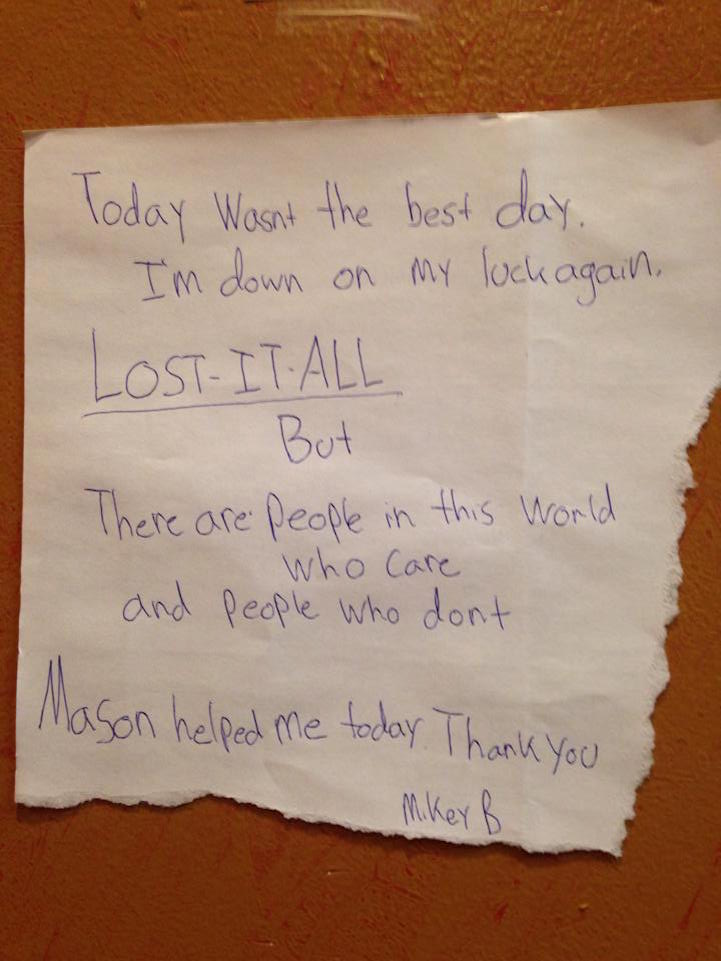 Today Wasnt the best day.
I'm down on my luck again.
LOST-IT-ALL
But
There are people in this World
who care
and people who dont
Mason helped me today. Thank you
Mikey B